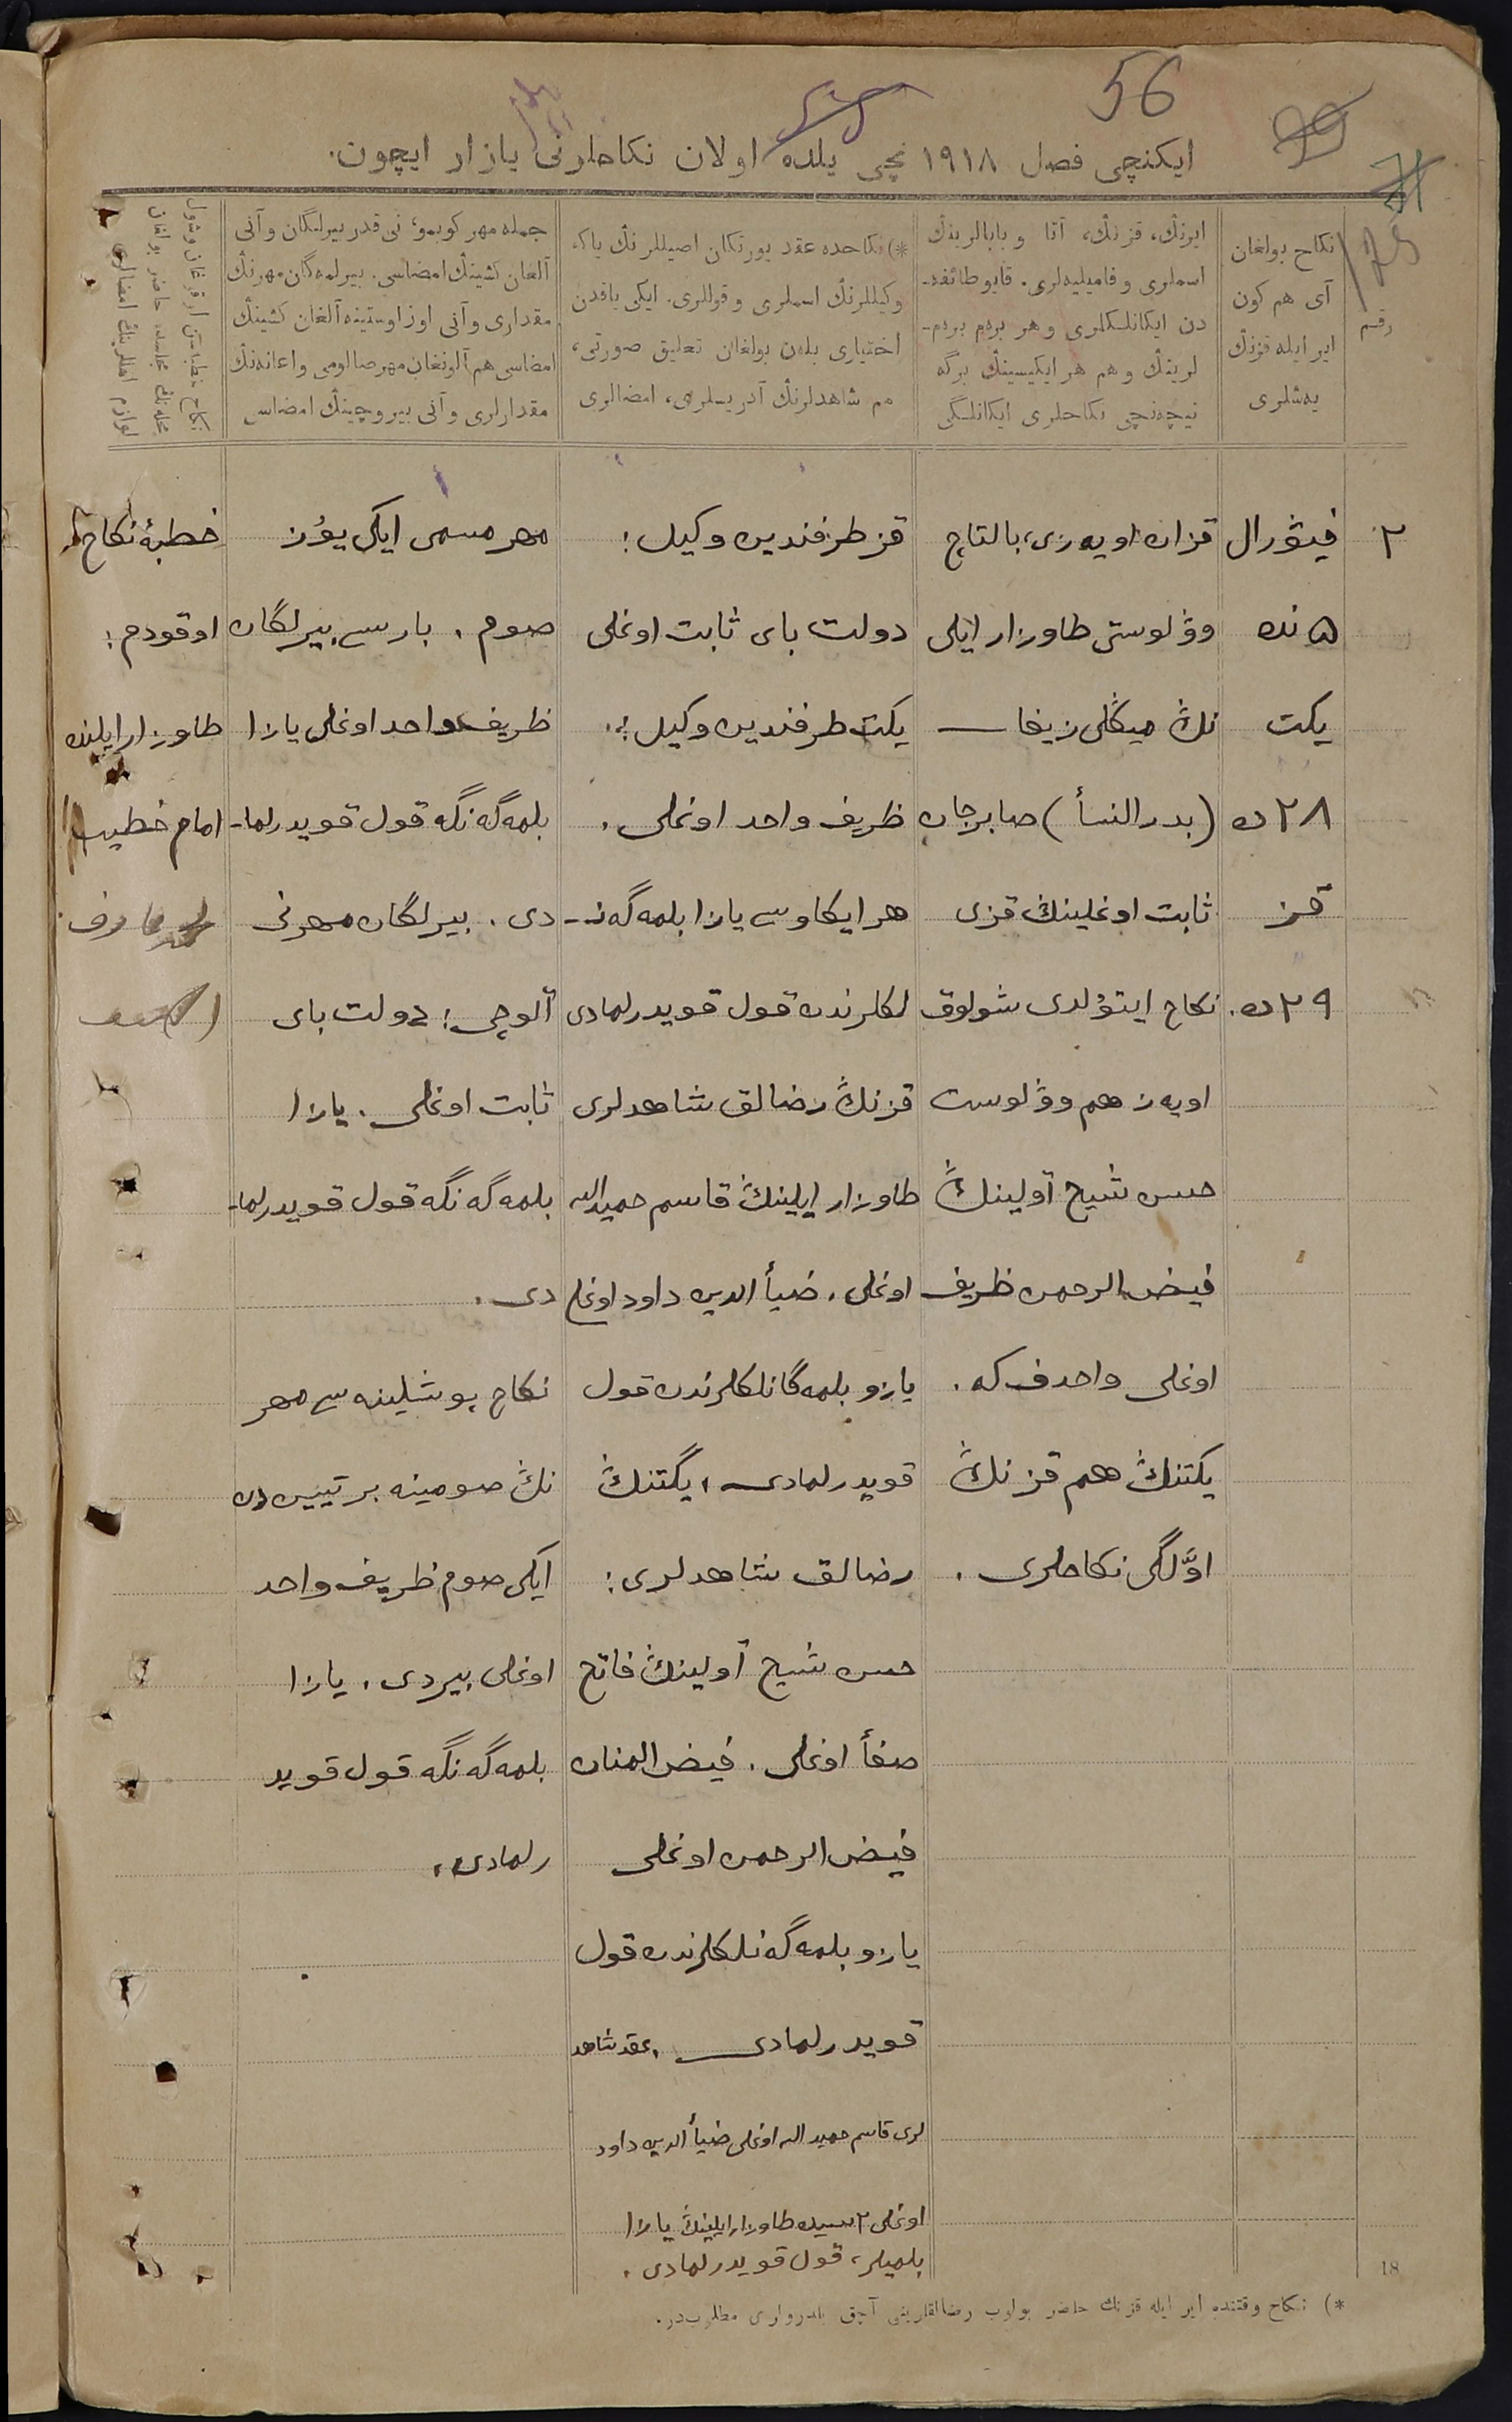 56
ایکنچی فصل ١٩١٨ نچی یلده اولان نکاحلرنی یازار ایچون.
رقم
نکاح بولغان
آی هم کون
ایر ایله قزنڭ
یەشلری
ایرنڭ، قزنڭ، آتا و بابالرینڭ
اسملری و فامیلیەلری. قایو طائفه‌
دن ایکانلکلری و هر بردم بردم‌
لرینڭ و هم هر ایکیسینڭ برگه
نیچەنچی نکاحلری ایکانلگی
*) نکاحده عقد یورتکان اصیللرنڭ یاکه
وکیللرنڭ اسملری و قوللری. ایکی یاقدن
اختیاری بلەن بولغان تعلیق صورتی،
هم شاهدلرنڭ آدریسلری، امضالری
جمله مهر کوبمو، نی قدر بیرلگان و آنی
آلغان کشینڭ امضاسی. بیرلمەگان مهرنڭ
مقداری و آنی اوز اوستینه آلغان کشینڭ
امضاسی هم آلونغان مهر صالومی و اعانه‌نڭ
مقدارلری و آنی بیروچینڭ امضاسی
٢
فیۋرال
۵ نده
یکت
٢٨ ده
قز
٢٩ ده.
قزان اویەزی، بالتاچ
وۋلوستی طاوزار ایلی
نڭ میڭلی زیفا
(بدر النسأ) صابرجان
ثابت اوغلینڭ قزی
نکاح ایتۇلدی شولوق
اویەز هم وۋلوست
حسن شیخ آولینڭ
فیض الرحمن ظریف
اوغلی واحدف که.
یکتنڭ هم قزنڭ
اوّلگی نکاحلری.
قز طرفندین وکیل:
دولت بای ثابت اوغلی
یکت طرفندین وکیل:
ظریف واحد اوغلی.
هر ایکاوسی یازا بلمەگەن‌
لکلرندن قول قویدرلمادی
قزنڭ رضالق شاهدلری
طاوزار ایلینڭ قاسم حمیدالله
اوغلی. ضیأ الدین داود اوغلی
یازو بلمەگانلکلرندن قول
قویدرلمادی، یگتنڭ
رضالق شاهدلری:
حسن شیخ آولینڭ فاتح
صفأ اوغلی. فیض المنان
فیض الرحمن اوغلی
یازو بلمەگەنلکلرندن قول
قویدرلمادی، عقد شاهد
لری قاسم حمید الله اوغلی ضیأ الدین داود
اوغلی ٢ سیده طاوزار ایلینڭ یازا
بلمیلر، قول قویدرلمادی.
مهر مسمی ایکی یۇز
صوم. بارسی بیرلگان
ظریف واحد اوغلی یازا
بلمەگەنگە قول قویدرلما‌
دی. بیرلگان مهرنی
آلوچی: دولت بای
ثابت اوغلی. یازا
بلمەگەنگە قول قویدرلما‌
دی.
نکاح پوشلینەسی مهر
نڭ صومینه بر تیین دن
ایکی صوم ظریف واحد
اوغلی بیردی. یازا
بلمەگەنگە قول قوید
رلمادی،
خطبۀ نکاح
اوقودم:
طاوزار ایلینده
امام خطیب
18
*) نکاح وقتنده ایر ایله قزنڭ حاضر بولوب رضالقلرینی آچق بلدرولری مطلوب‌در.